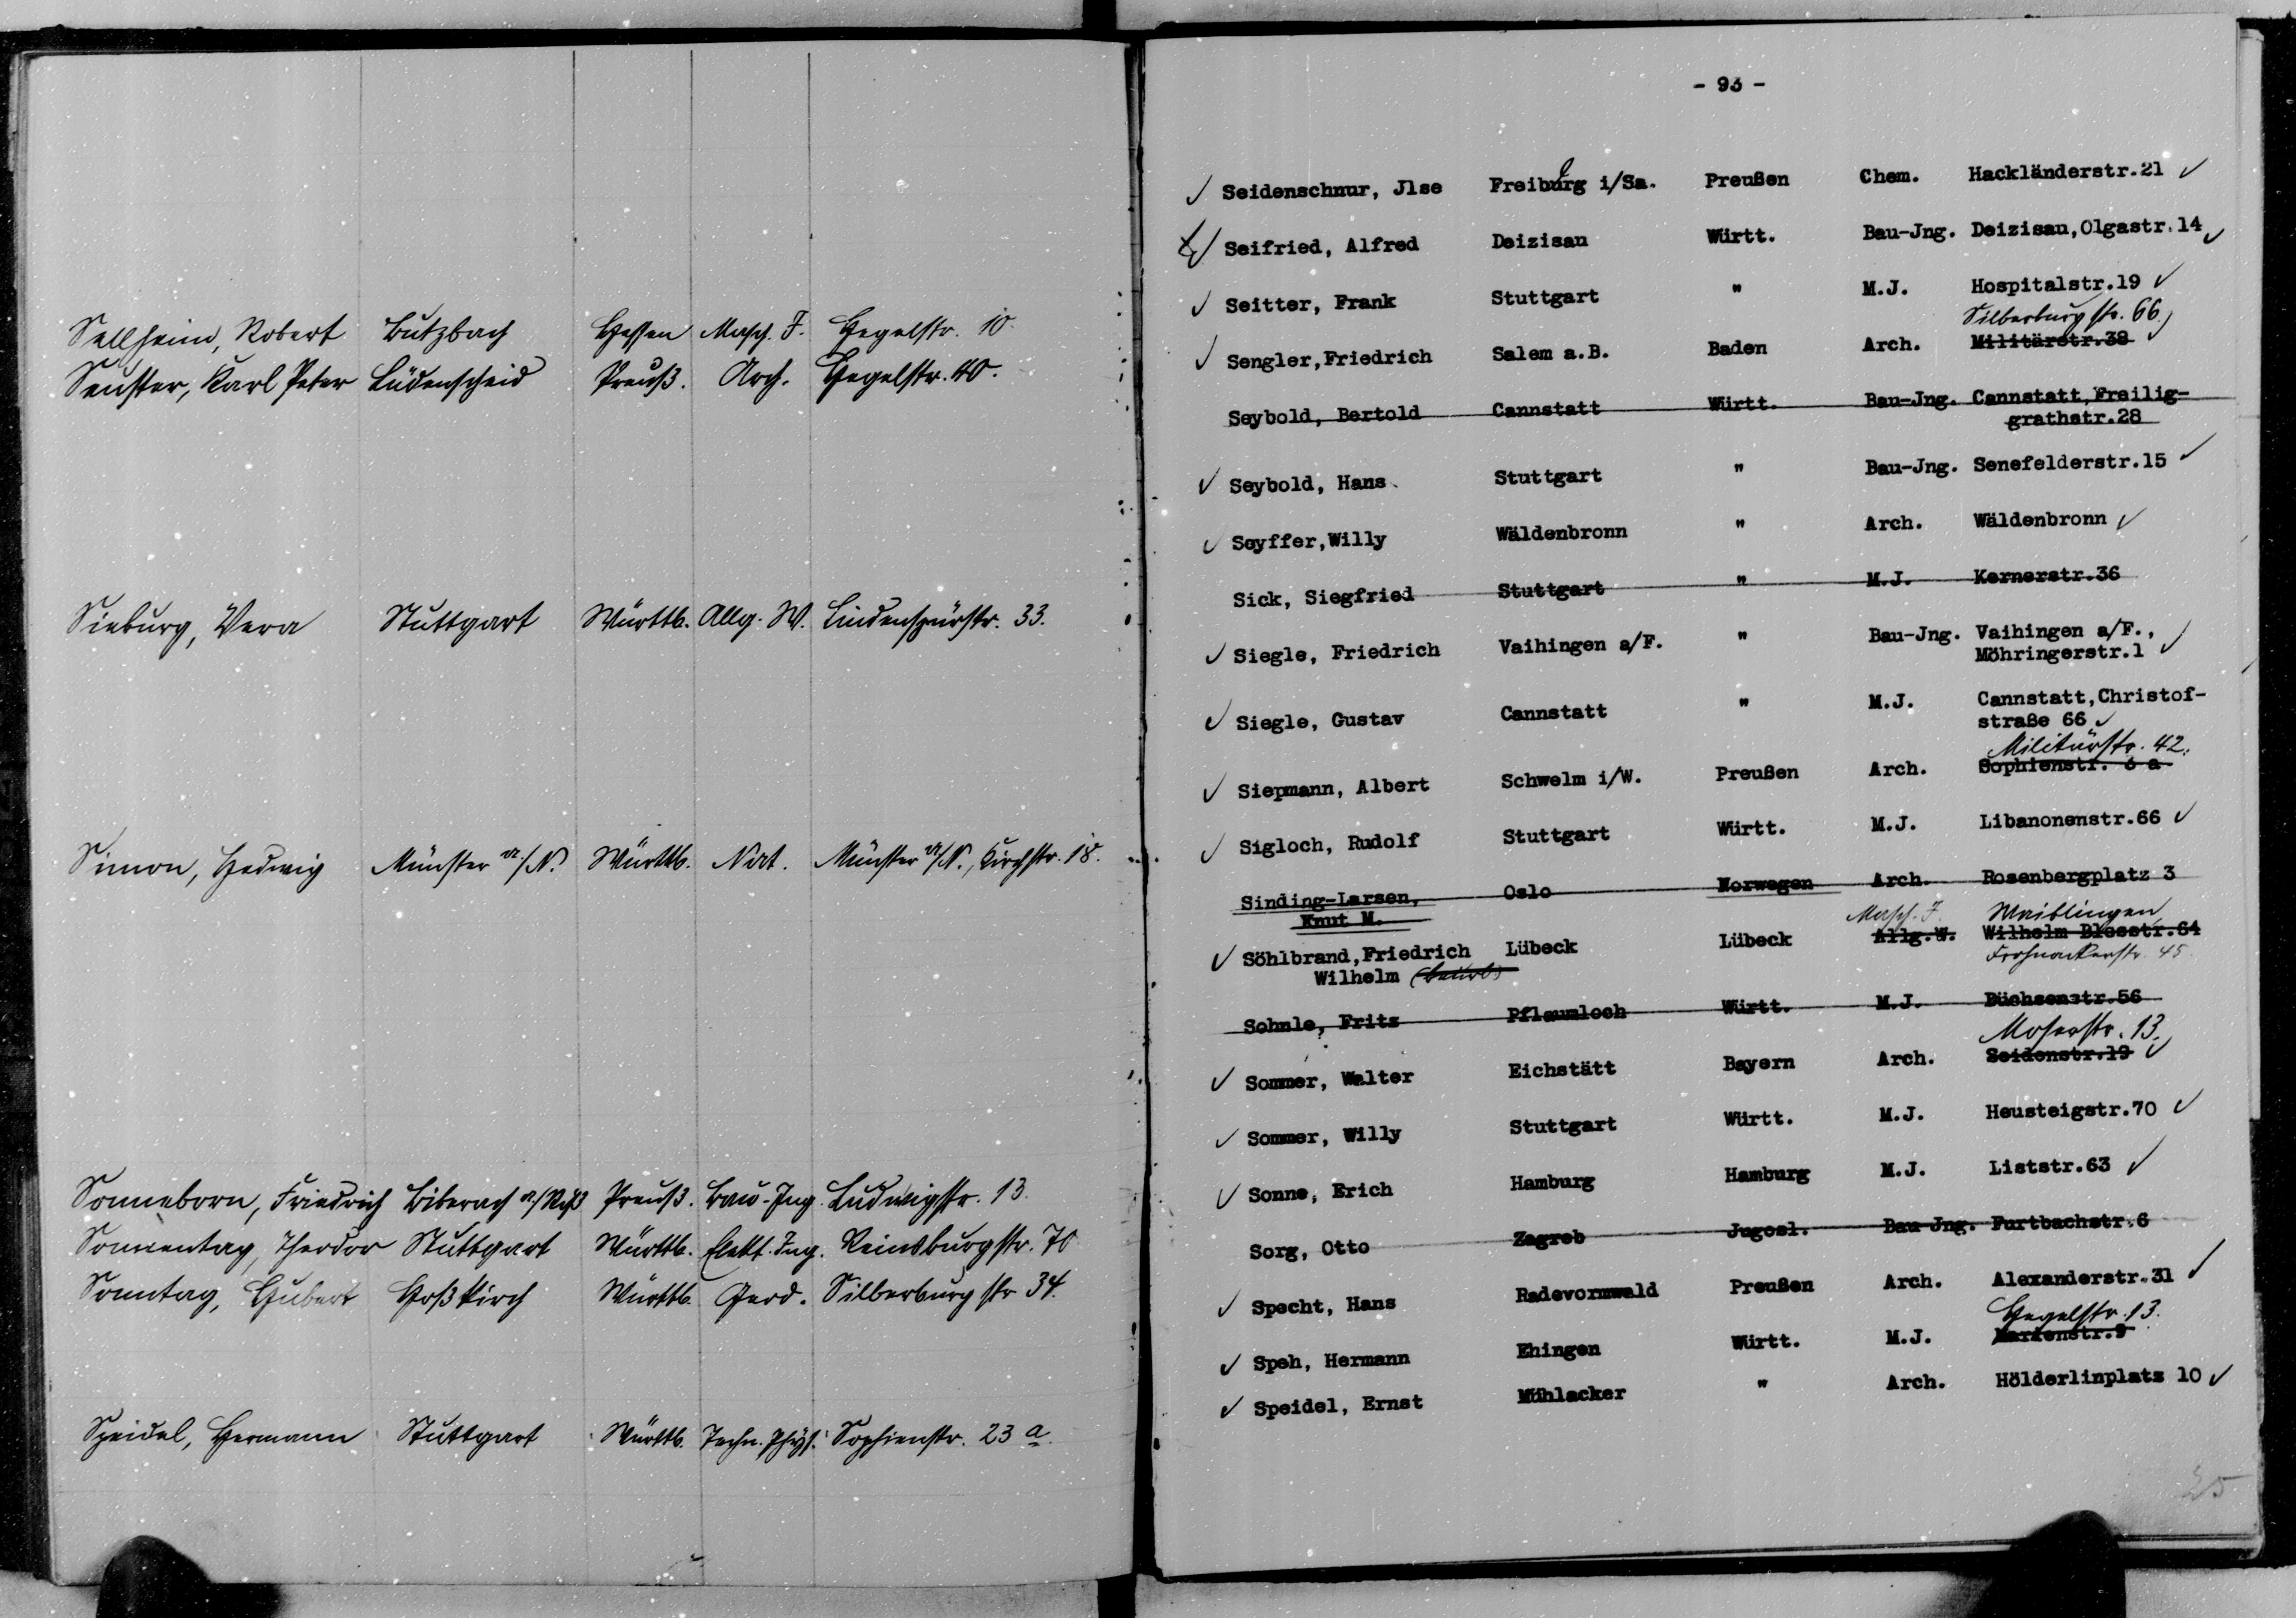 Sellheim, Robert Butzbach Hessen Masch. I. Hegelstr. 10.
Senster, Karl Peter Lüdenscheid Preuß. Arch. Hegelstr. 40.
Sieburg, Vera Stuttgart Württb. Allg. W. Lindenspürstr. 33.
Simon, Hedwig Münster a/N. Württb. Nat. Münster a/N., Kirchstr. 18.
Sonneborn, Friedrich Biberach a/Riß Preuß. Bau-Ing. Ludwigstr. 13.
Sonnentag, Theodor Stuttgart Württb. Elekt. Ing. Reinsburgstr. 70
Sonntag, Hubert Hoßkirch Württb. Geod. Silberburgstr 34.
Speidel, Hermann Stuttgart Württb. Techn. Phys. Sophienstr. 23 a.
- 93 -
Seidenschnur, Jlse Freiburg i/Sa. Preußen Chem. Hackländerstr.21
Seifried, Alfred Deizisau Württ. Bau-Jng. Deizisau,Olgastr.14
Seitter, Frank Stuttgart " M.J. Hospitalstr.19
Silberburgstr. 66.
Sengler,Friedrich Salem a.B. Baden Arch. Militärstr.38
Seybold, Bertold Cannstatt Württ. Bau-Jng. Cannstatt,Freilig-
grathstr.28
Seybold, Hans Stuttgart " Bau-Jng. Senefelderstr.15
Seyffer,Willy Wäldenbronn " Arch. Wäldenbronn
Sick, Siegfried Stuttgart " M.J. Kernerstr.36
Siegle, Friedrich Vaihingen a/F. " Bau-Jng. Vaihingen a/F.,
Möhringerstr.1
Siegle, Gustav Cannstatt " M.J. Cannstatt,Christof-
straße 66
Militärstr. 42.
Siepmann, Albert Schwelm i/W. Preußen Arch. Sophienstr. 6 a
Sigloch, Rudolf Stuttgart Württ. M.J. Libanonenstr.66
Sinding-Larsen, Oslo Norwegen Arch. Rosenbergplatz 3
Knut M.
Masch. I. Waiblingen,
Söhlbrand,Friedrich Lübeck Lübeck Allg.W. Wilhelm Blosstr.64
Wilhelm (beurl.) Fronackerstr. 45.
Sohnle, Fritz Pflaumloch Württ. M.J. Büchsenstr.56
Moserstr. 13.
Sommer, Walter Eichstätt Bayern Arch. Seidenstr.19
Sommer, Willy Stuttgart Württ. M.J. Heusteigstr.70
Sonne, Erich Hamburg Hamburg M.J. Liststr.63
Sorg, Otto Zagreb Jugosl. Bau Jng. Furtbachstr.6
Specht, Hans Radevormwald Preußen Arch. Alexanderstr.31
Hegelstr. 13.
Speh, Hermann Ehingen Württ. M.J. Marienstr.9
Speidel, Ernst Mühlacker " Arch. Hölderlinplatz 10
25